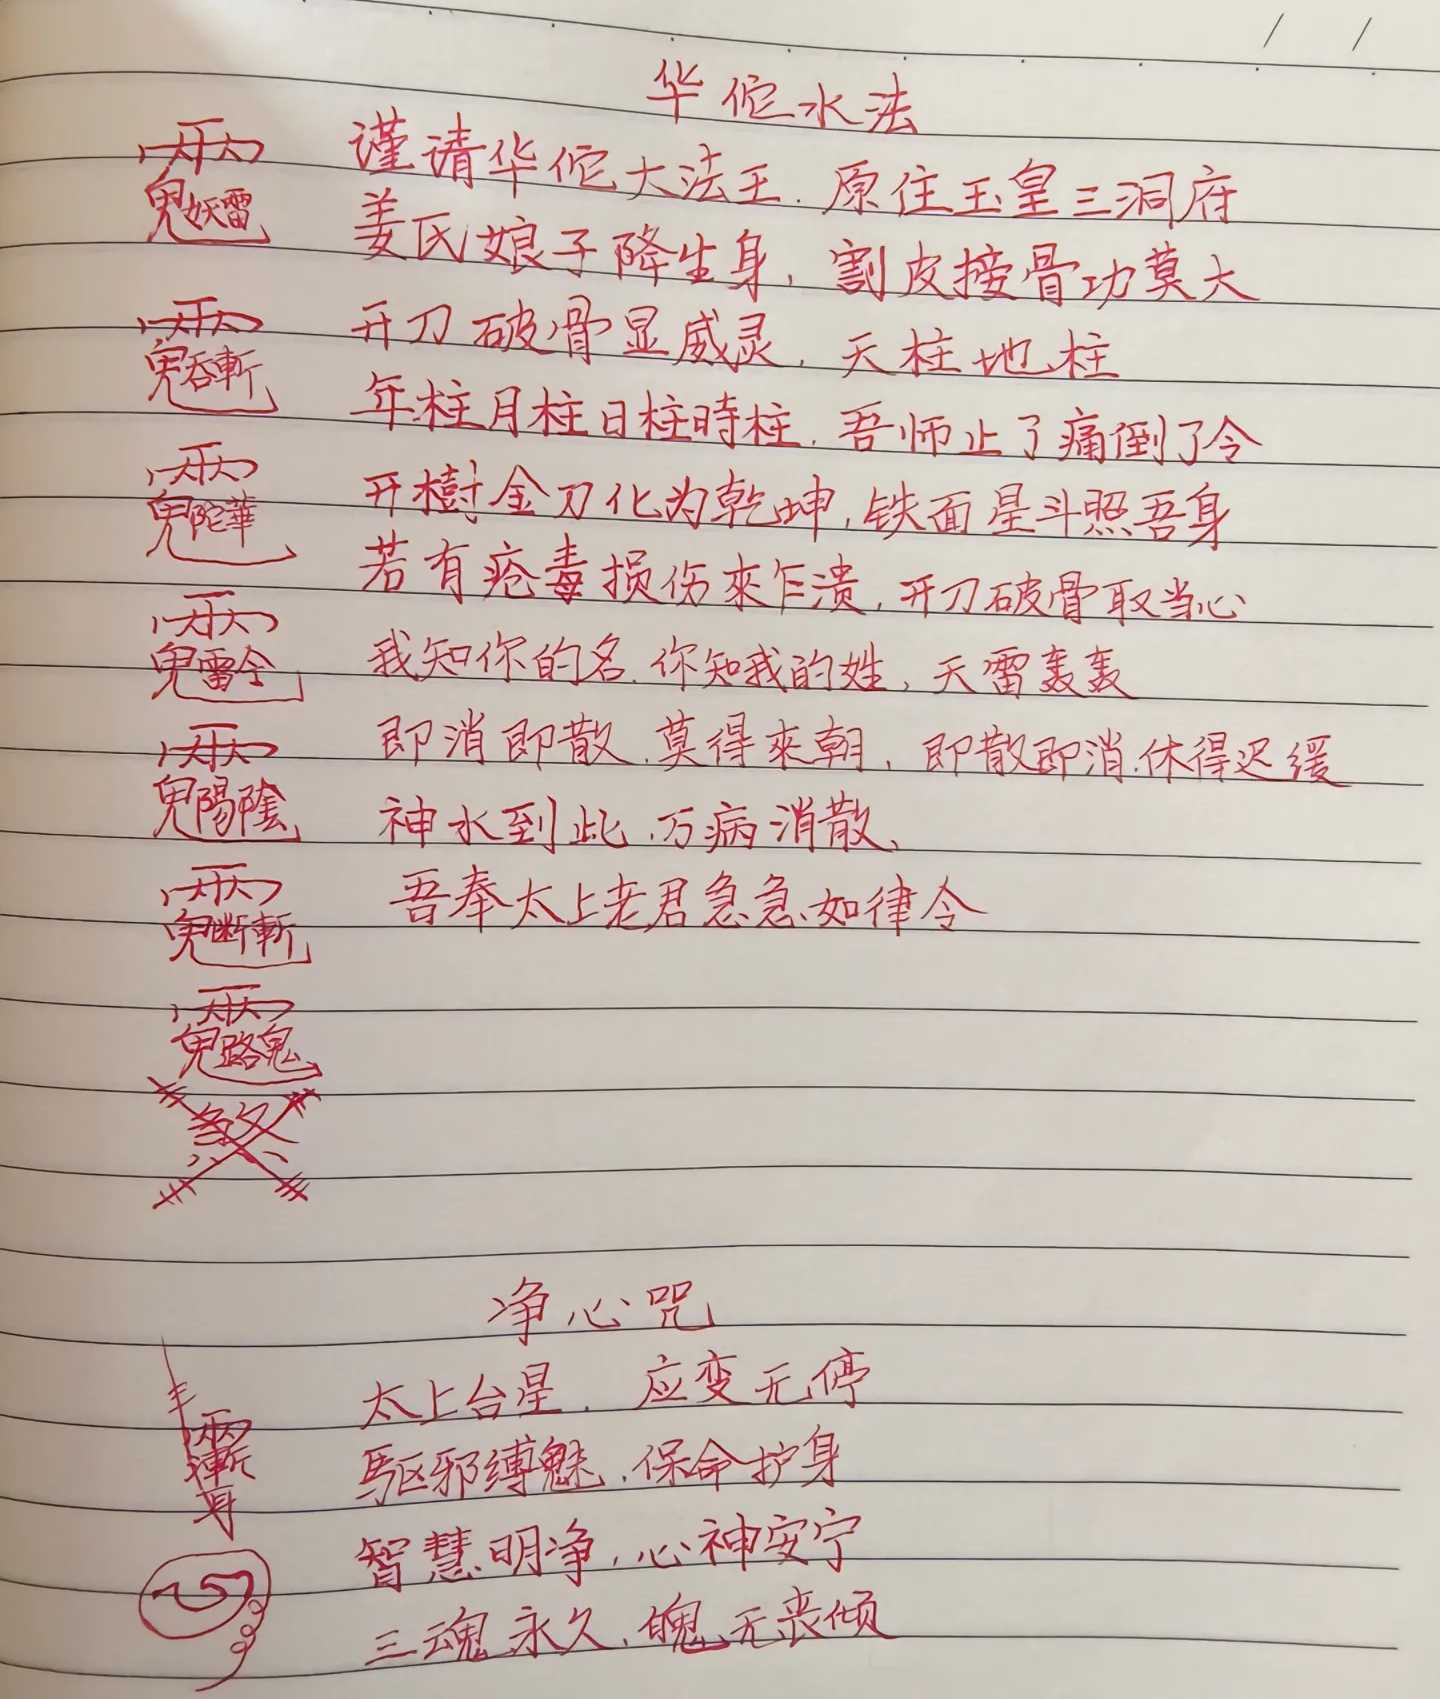 华佗水法
谨请华佗大法王.原住玉皇三洞府
姜氏娘子降生身,割皮接骨功莫大
开刀破骨显威灵,天柱地柱
年柱月柱日柱時柱.吾师止了痛倒了令
开樹金刀化为乾坤,铁面星斗照吾身
若有疮毒损伤來乍溃,开刀破骨取当心
我知你的名.你知我的姓,天雷轰轰
即消即散.莫得來朝,即散即消.休得迟缓
神水到此.万病消散、
吾奉太上老君急急如律令
净心咒
太上台星.应变无停
驱邪缚魅.保命护身
智慧明净,心神安宁
三魂永久、魄无丧倾